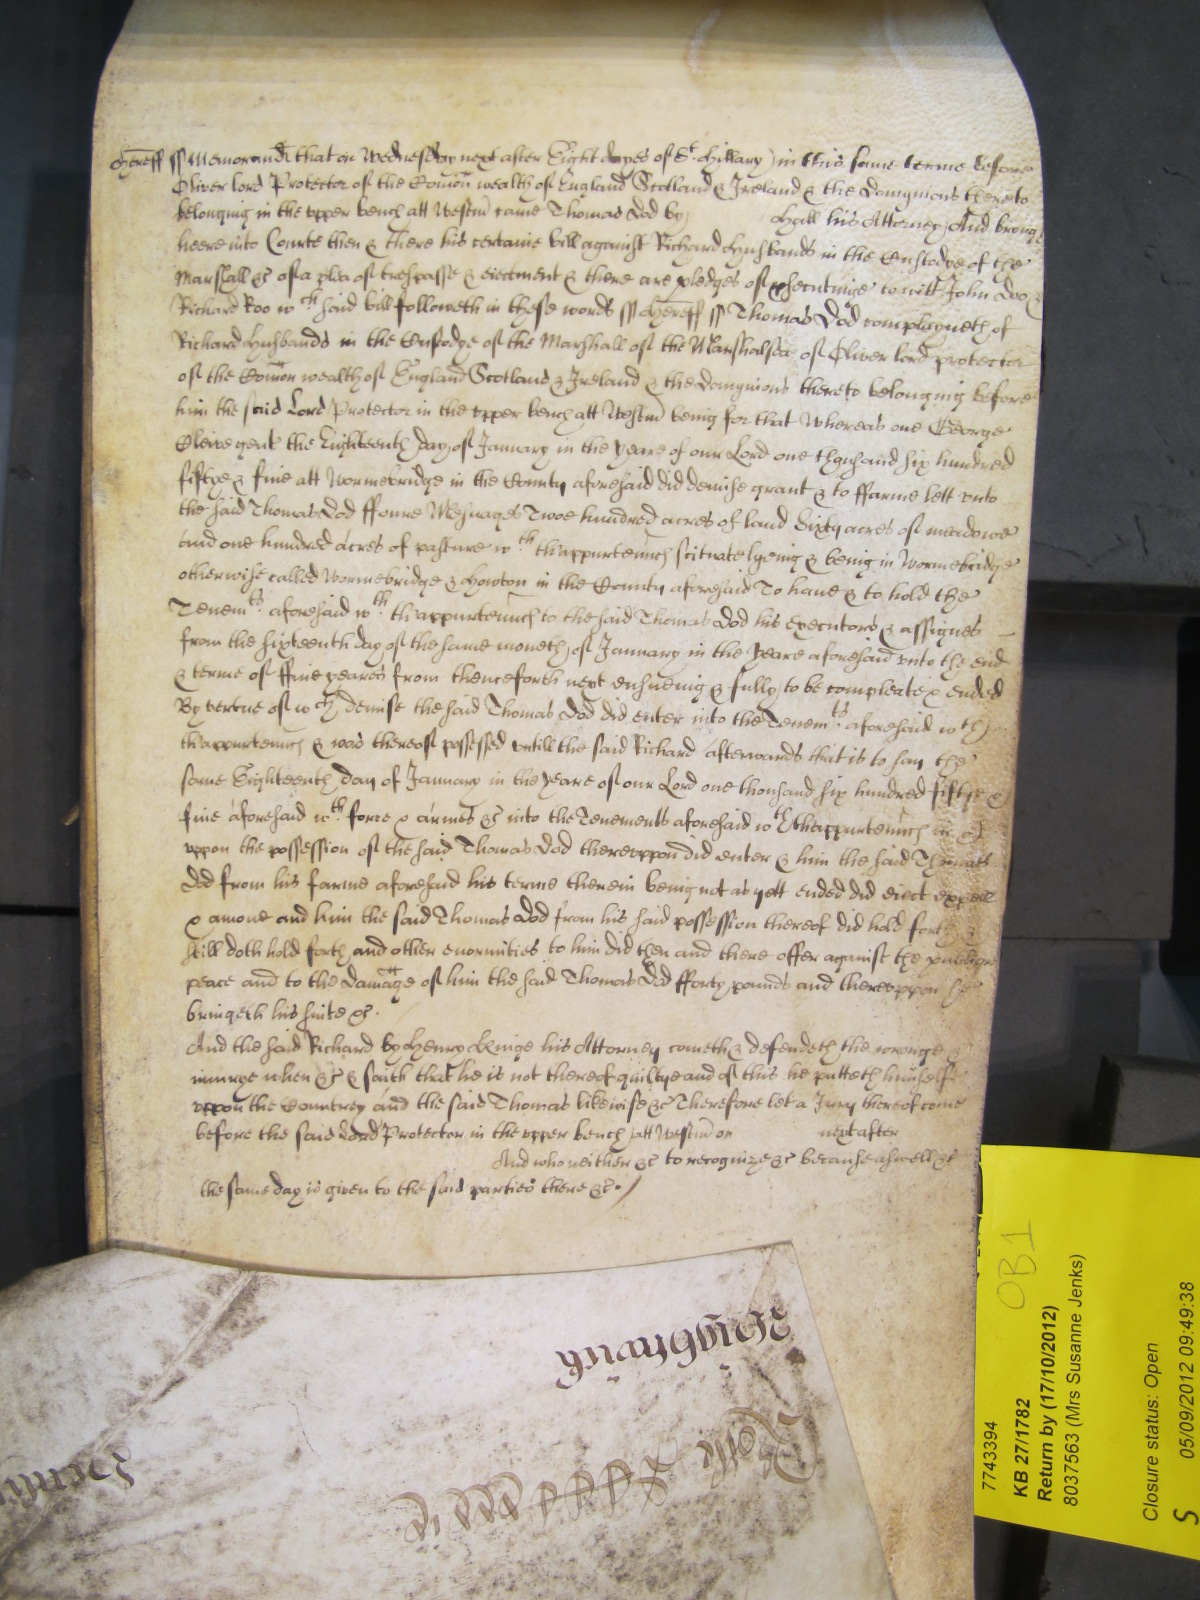 Hereff ss Memorand that on Wednesday next after Eight dayes of St. Hillary in this same terme before
Oliver lord Protector of the Comon wealth of England Scotland & Ireland & the Dominions thereto
belonging in the vpper bench att Westm came Thomas Dod by Hall his Attorney And broug
heere into Courte then & there his certaine bill against Richard Husbands in the Custodye of the
Marshall &c of a plea of trespasse & eiectment & there are pledges of prosecutinge to witt John Doo &
Richard Roo wch said bill followeth in these words ss Hereff ss Thomas Dod complayneth of
Richard Husbands in the Custodye of the Marshall of the Marshalsea of Oliver lord protector
of the Comon wealth of England Scotland & Ireland & the Dominions thereto belonging before
him the said Lord Protector in the vpper bench att Westm being for that Whereas one George
Cleive gent the Eighteenth day of January in the yeare of our Lord one thousand six hundred
fiftye & fiue att Wormebridge in the County aforesaid did demise grant & to ffarme lett vnto
the said Thomas Dod ffoure Mesuages Twoe hundred acres of land Sixty acres of meadowe
and one hundred acres of pasture wth. thappurtennces scituate lyeing & being in Wormebridge
otherwise called Wormebridge & Howton in the County aforesaid To haue & to hold the
Tenemts. aforesaid wth. thappurtennces to the said Thomas Dod his executors & assignes
from the sixteenth day of the same moneth of January in the yeare aforesaid vnto the end
& terme of ffiue yeares from thenceforth next ensueing & fully to be compleate & ended
By vertue of wch demise the said Thomas Dod did enter into the Tenemts. aforesaid wth
thappurtennces & was thereof possessed vntill the said Richard afterwards that is to say the
same Eighteenth day of January in the yeare of our Lord one thousand six hundred fiftye &
fiue aforesaid wth. force & armes &c into the Tenements aforesaid wth thappurtennces in &
vppon the possession of the said Thomas Dod therevppon did enter & him the said Thomas
Dod from his farme aforesaid his terme therein being not as yett ended did eiect expell
& amove and him the said Thomas Dod from his said possession thereof did hold forth &
still doth hold forth and other enormities to him did then and there offer against the publique
peace and to the damage of him the said Thomas Dod fforty pounds and therevppon he
bringeth his suite &c.
And the said Richard by Henry Kinge his Attorney cometh & defendeth the wronge &
iniurye when &c & saith that he is not thereof guiltye and of this he putteth himselfe
vppon the Countrey and the said Thomas likewise &c Therefore let a Jury thereof come
before the said Lord Protector in the vpper bench att Westm on next after
And who neither &c to recognize &c because aswell &c
the same day is given to the said parties there &c.
OB1
7743394
KB 27/1782
Return by (17/10/2012)
8037563 (Mrs Susanne Jenks)
Closure status: Open
05/09/2012 09:49:38
S